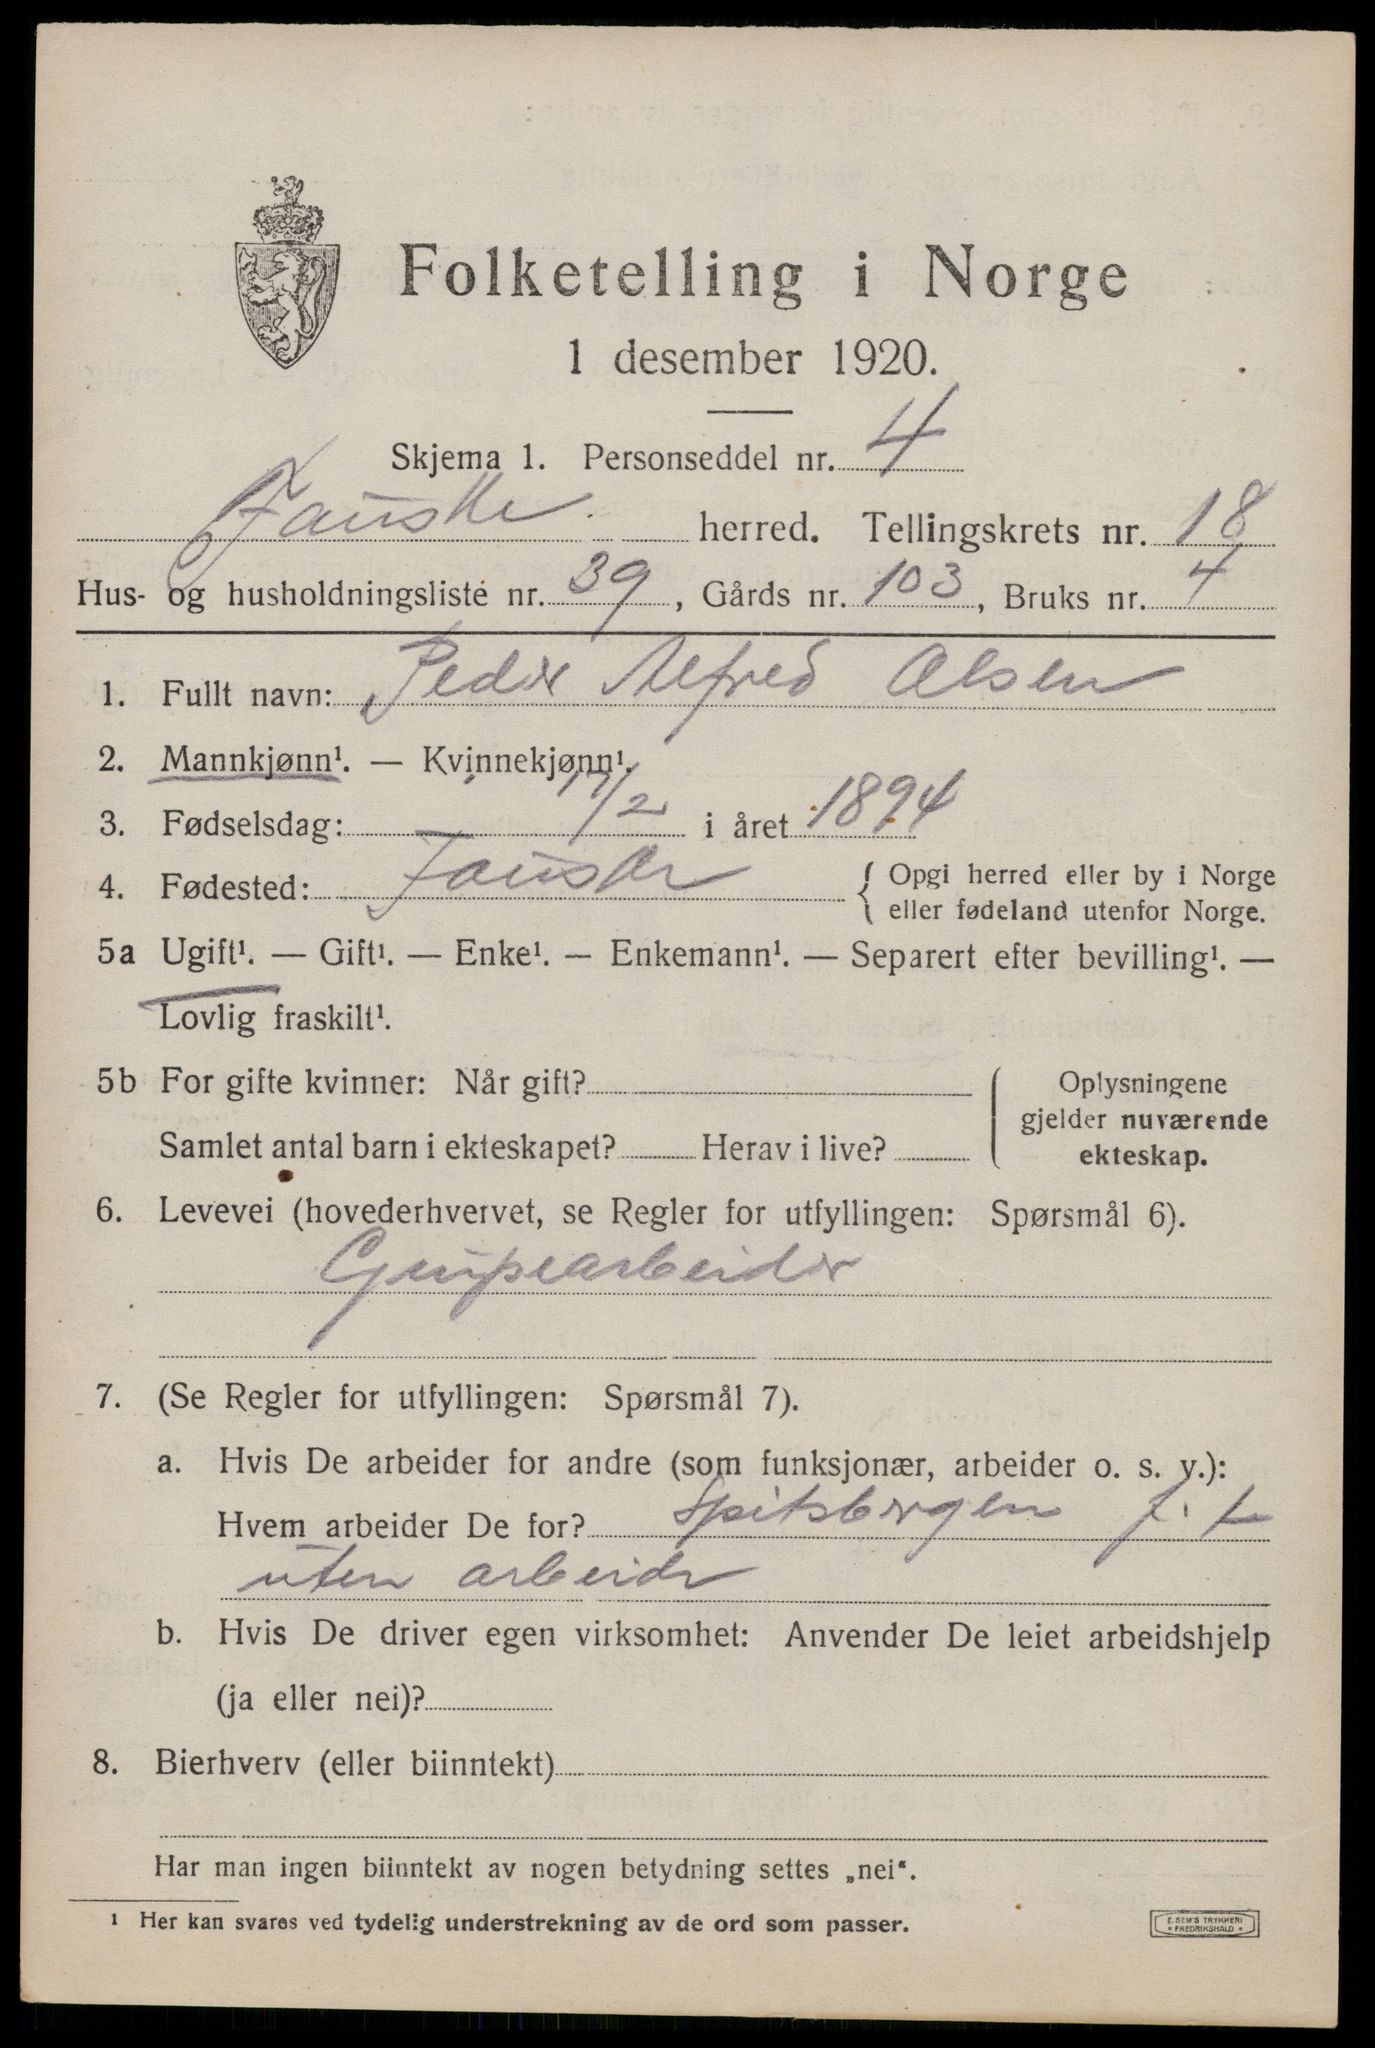 Folketelling i Norge
1 desember 1920.
Skjema 1. Personseddel nr. 4
Fauske herred. Tellingskrets nr. 18
Hus- og husholdningsliste nr. 39, Gårds nr. 103, Bruks nr. 4
1. Fullt navn: Peder Alfred Olsen
2. Mannkjønn¹. — Kvinnekjønn¹.
3. Fødselsdag: 17/2 i året 1894
4. Fødested: Fauske { Opgi herred eller by i Norge
eller fødeland utenfor Norge.
5a Ugift¹. — Gift¹. — Enke¹. — Enkemann¹. — Separert efter bevilling¹. —
Lovlig fraskilt¹.
5b For gifte kvinner: Når gift?
Samlet antal barn i ekteskapet? Herav i live?
Oplysningene
gjelder nuværende
ekteskap.
6. Levevei (hovederhvervet, se Regler for utfyllingen: Spørsmål 6).
Grupearbeider
7. (Se Regler for utfyllingen: Spørsmål 7).
a. Hvis De arbeider for andre (som funksjonær, arbeider o. s. v.):
Hvem arbeider De for? Spitsbergen f. t.
uten arbeide
b. Hvis De driver egen virksomhet: Anvender De leiet arbeidshjelp
(ja eller nei)?
8. Bierhverv (eller biinntekt)
Har man ingen biinntekt av nogen betydning settes „nei“.
¹ Her kan svares ved tydelig understrekning av de ord som passer.
E. SEM'S TRYKKERI
• FREDRIKSHALD •